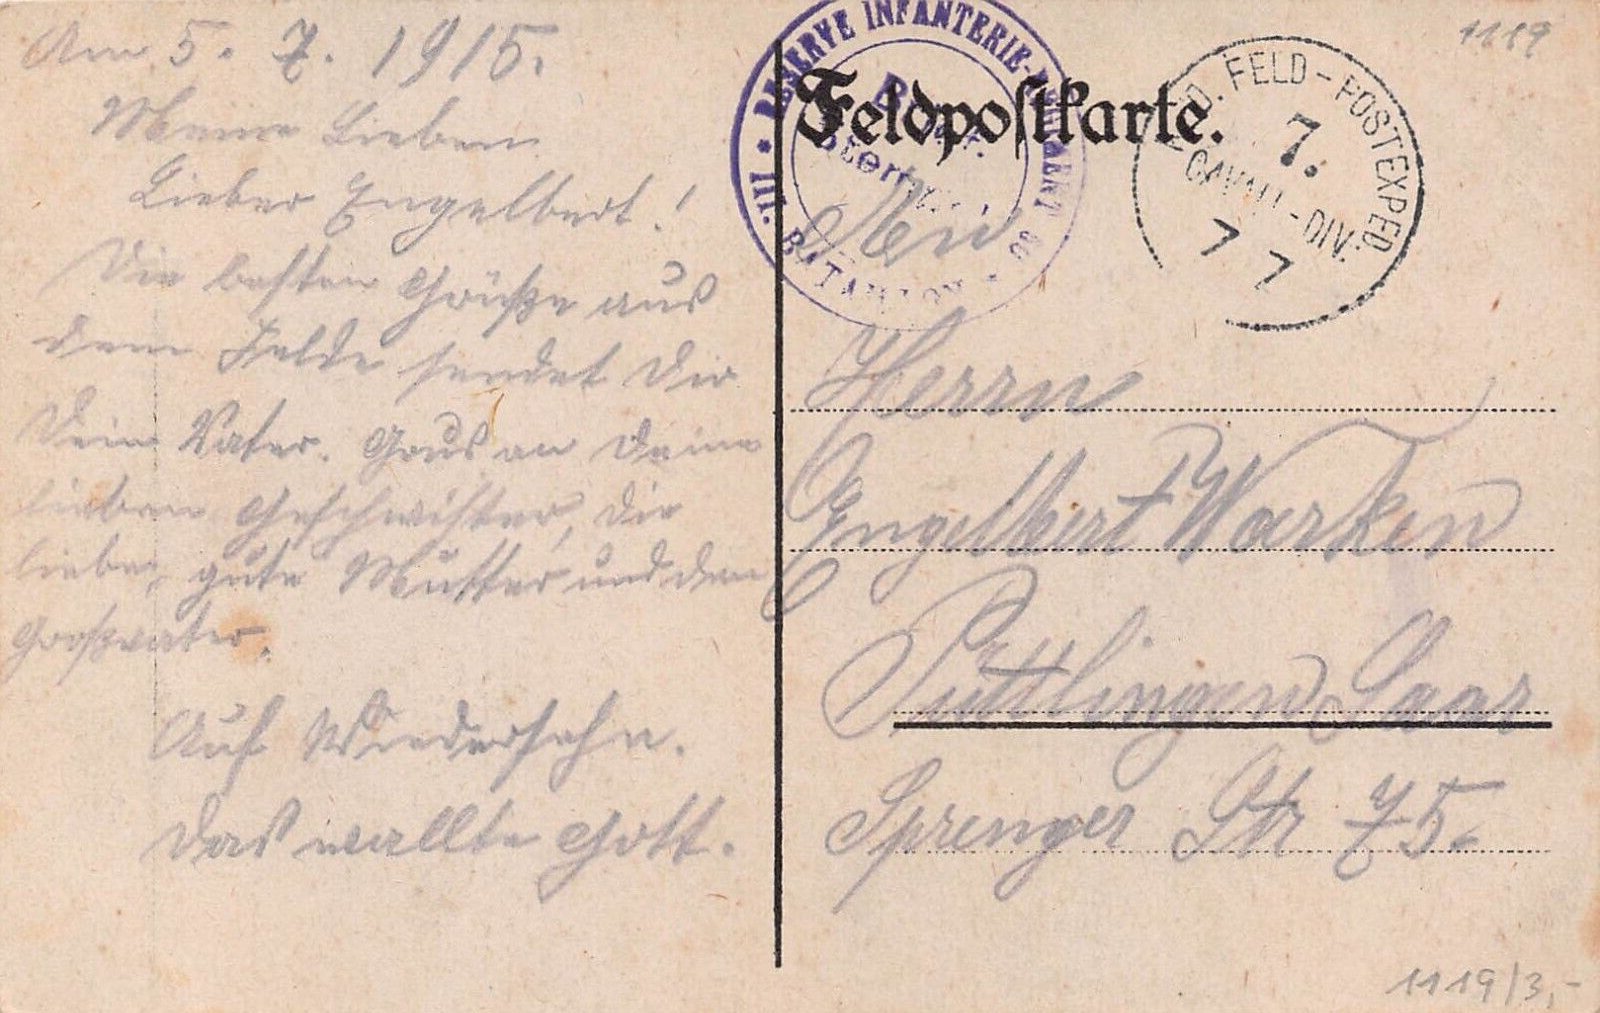 Am 5. 7. 1915.
Meine Lieben
Lieber Engelbert!
Die besten Grüße aus
dem Felde sendet Dir
Dein Vater. Grus an Deine
lieben Geschwister, die
liebe, gute Mutter und den
Großvater.
Auf Wiedersehn.
Das wallte Gott.
Feldpostkarte.
RESERVE INFANTERIE-REGIMENT
III. BATAILLON
FELD-POSTEXPED.
7.
CAVALL-DIV.
7 7
1119
An
Herrn
Engelbert Warken
Püttlingen Saar
Sprenger Str 75.
1119/3,-